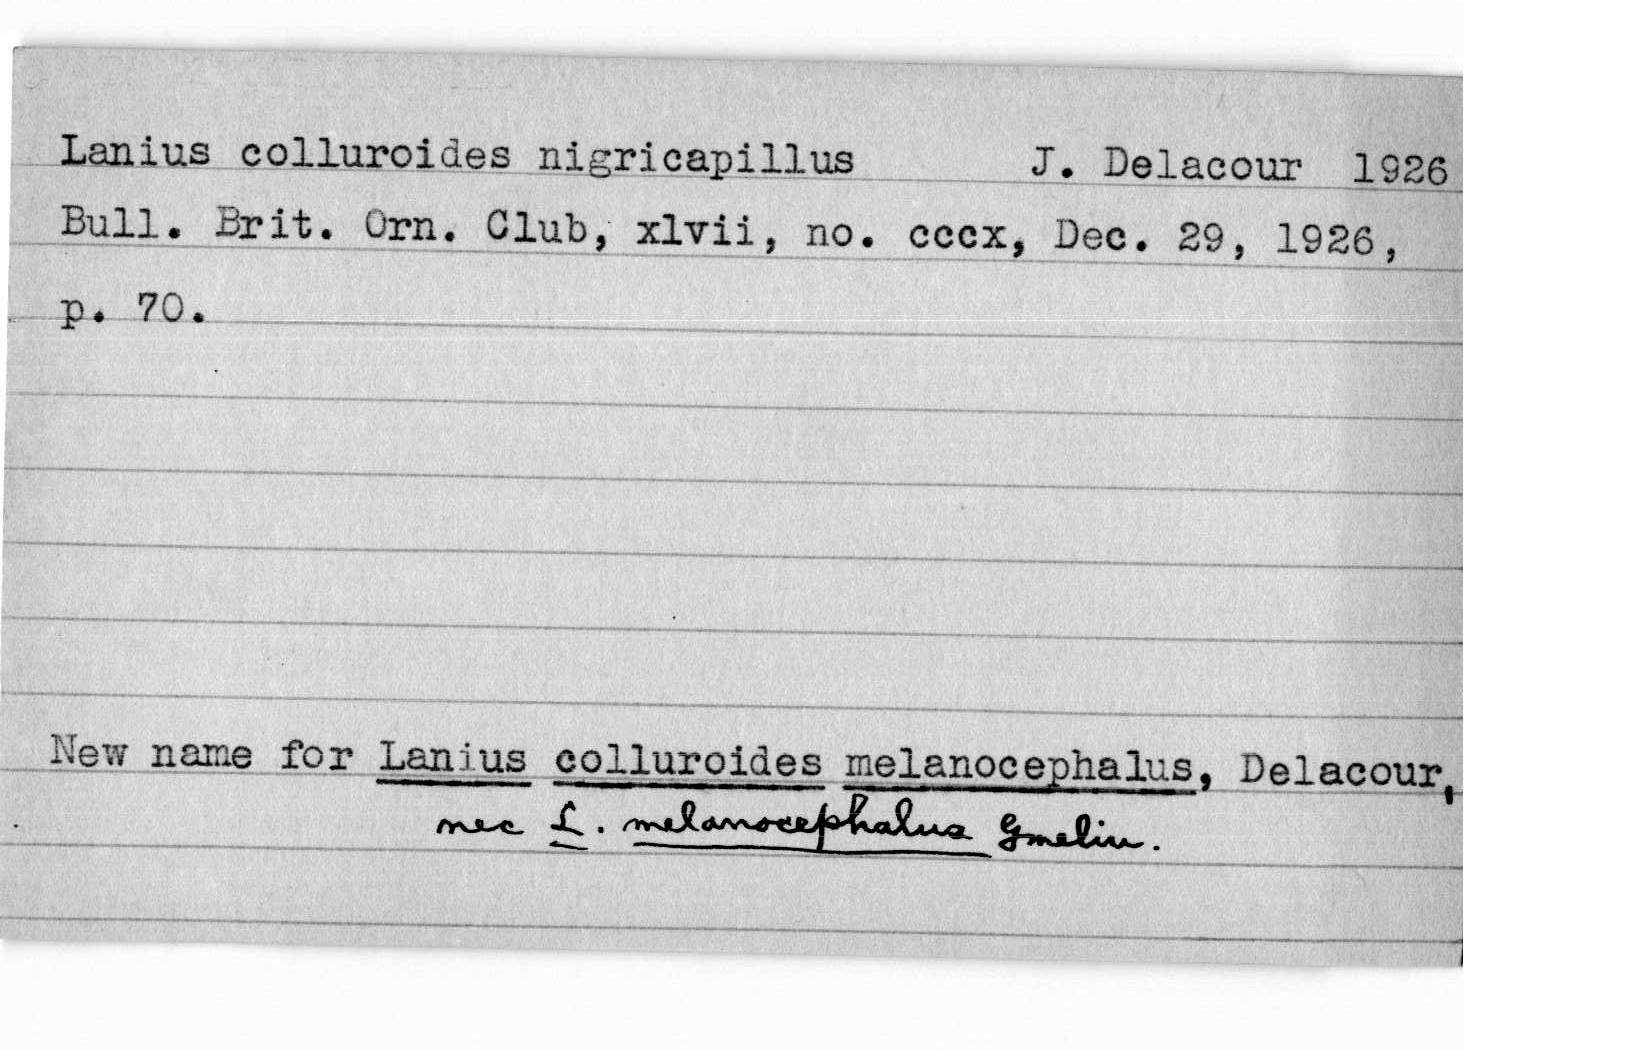 Lanius colluroides nigricapillus J. Delacour 1926
Bull. Brit. Orn. Club, xlvii, no. cccx, Dec. 29, 1926,
p. 70.
New name for Lanius colluroides melanocephalus, Delacour,
nec L. melanocephalus Gmelin.